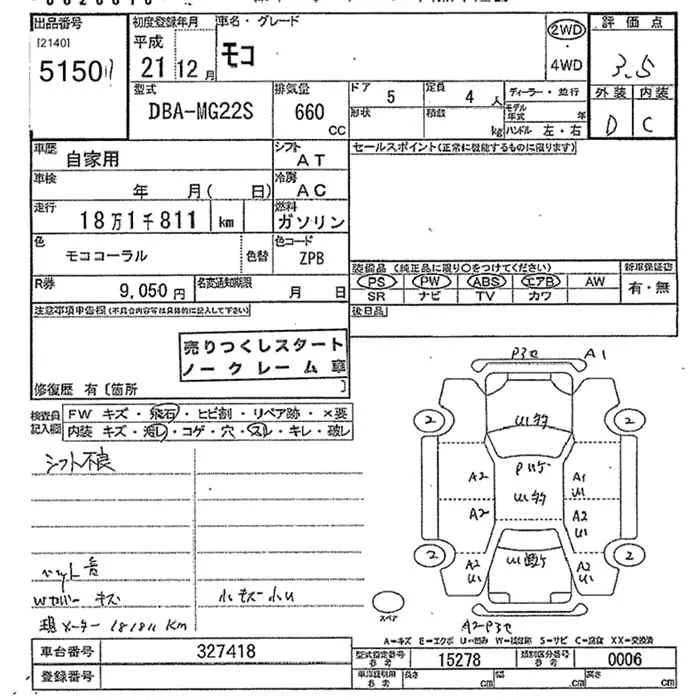 出品番号
[2140]
5150
初度登録年月
平成
21 12月
車名・グレード
モコ
2WD
4WD
評価点
3.5
外装 内装
D C
型式
DBA-MG22S
排気量
660
CC
ドア 5
定員 4 人
形状
積数 kg
ディーラー・並行
モデル年式 年
ハンドル 左・右
車歴 自家用
シフト AT
車検 年 月( 日)
冷房 AC
走行 18万1千811 km
燃料 ガソリン
色 モココーラル
色替
色コード ZPB
R券 9,050円
名変通知期限 月 日
セールスポイント(正常に機能するものに限ります)
装備品 (純正品に限り○をつけてください)
PS PW ABS エアB AW
SR ナビ TV カワ
新車保証書
有・無
後日品
注意事項申告欄(不具合内容等は具体的に記入して下さい)
売りつくしスタート
ノークレーム車
修復歴 有〔箇所 〕
検査員記入欄
FW キズ・飛石・ヒビ割・リペア跡・×要
内装 キズ・汚レ・コゲ・穴・スレ・キレ・破レ
シフト不良
ペット
Wカバー キズ
小キズ小U
現メーター 181811 Km
A1
2 2
A2 A1
U1
A2 A2
U1
2 2
A2 A2
U1 U1
スペア
A=キズ E=エクボ U=凹み W=補修跡 S=サビ C=腐食 XX=交換済
車台番号 327418
登録番号
型式指定番号 参考 15278
類別区分番号 参考 0006
車検証引用 参考 長さ cm 幅 cm 高さ cm